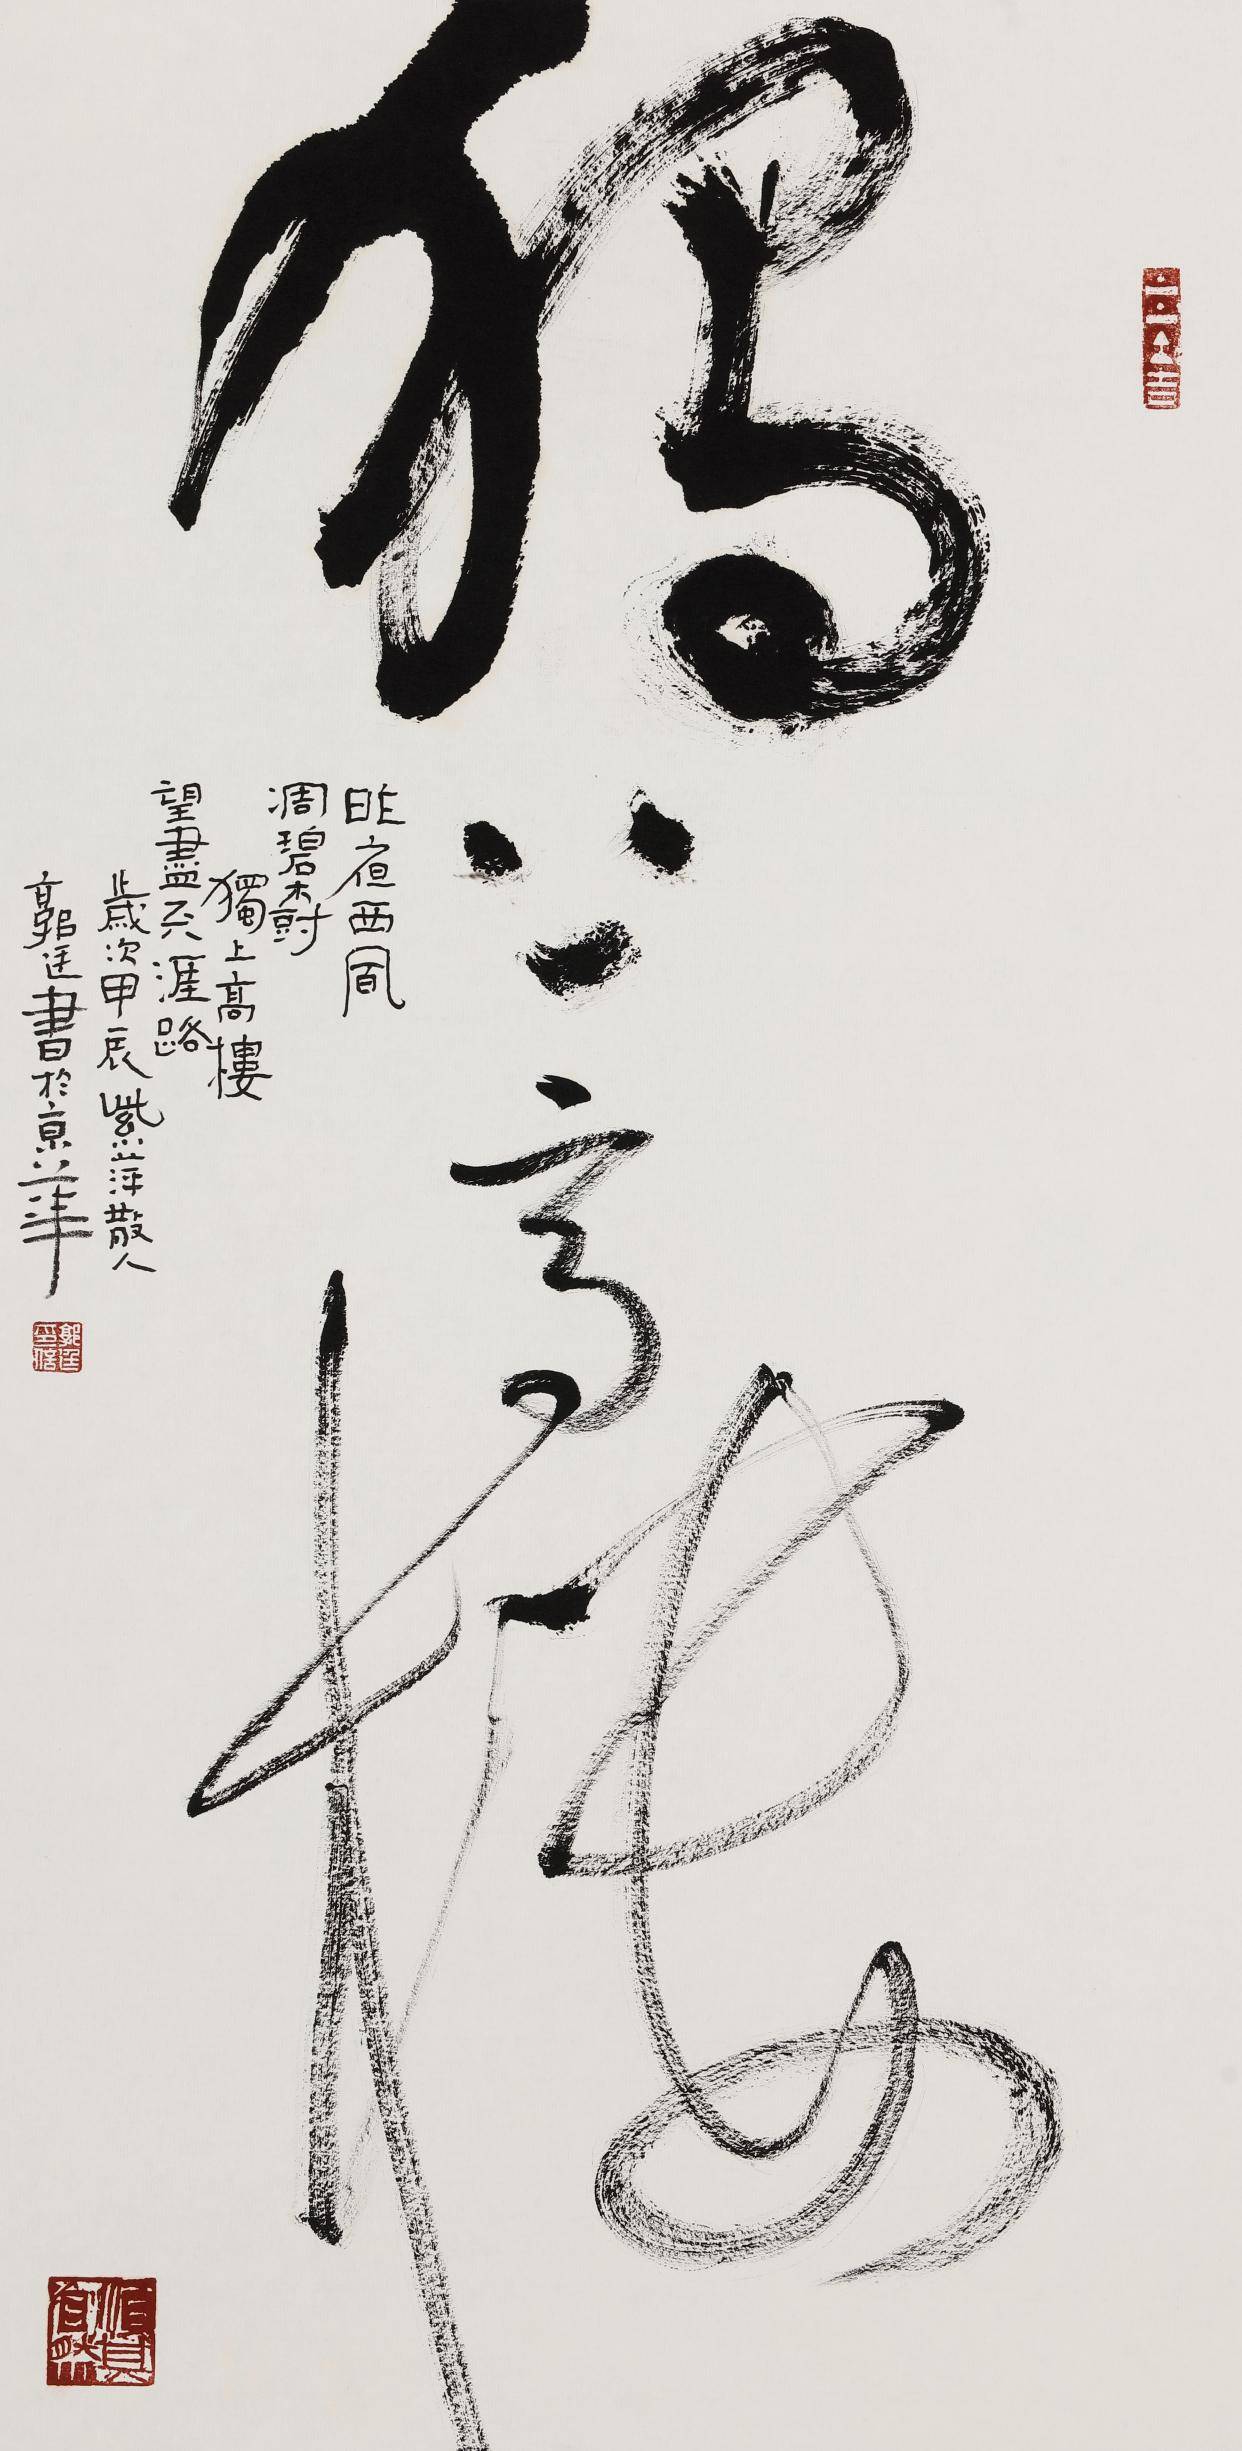 獨上高樓
昨夜西風
凋碧樹
獨上高樓
望盡天涯路
歲次甲辰紫萍散人
郭匡書於京華
郭匡印信
順其自然